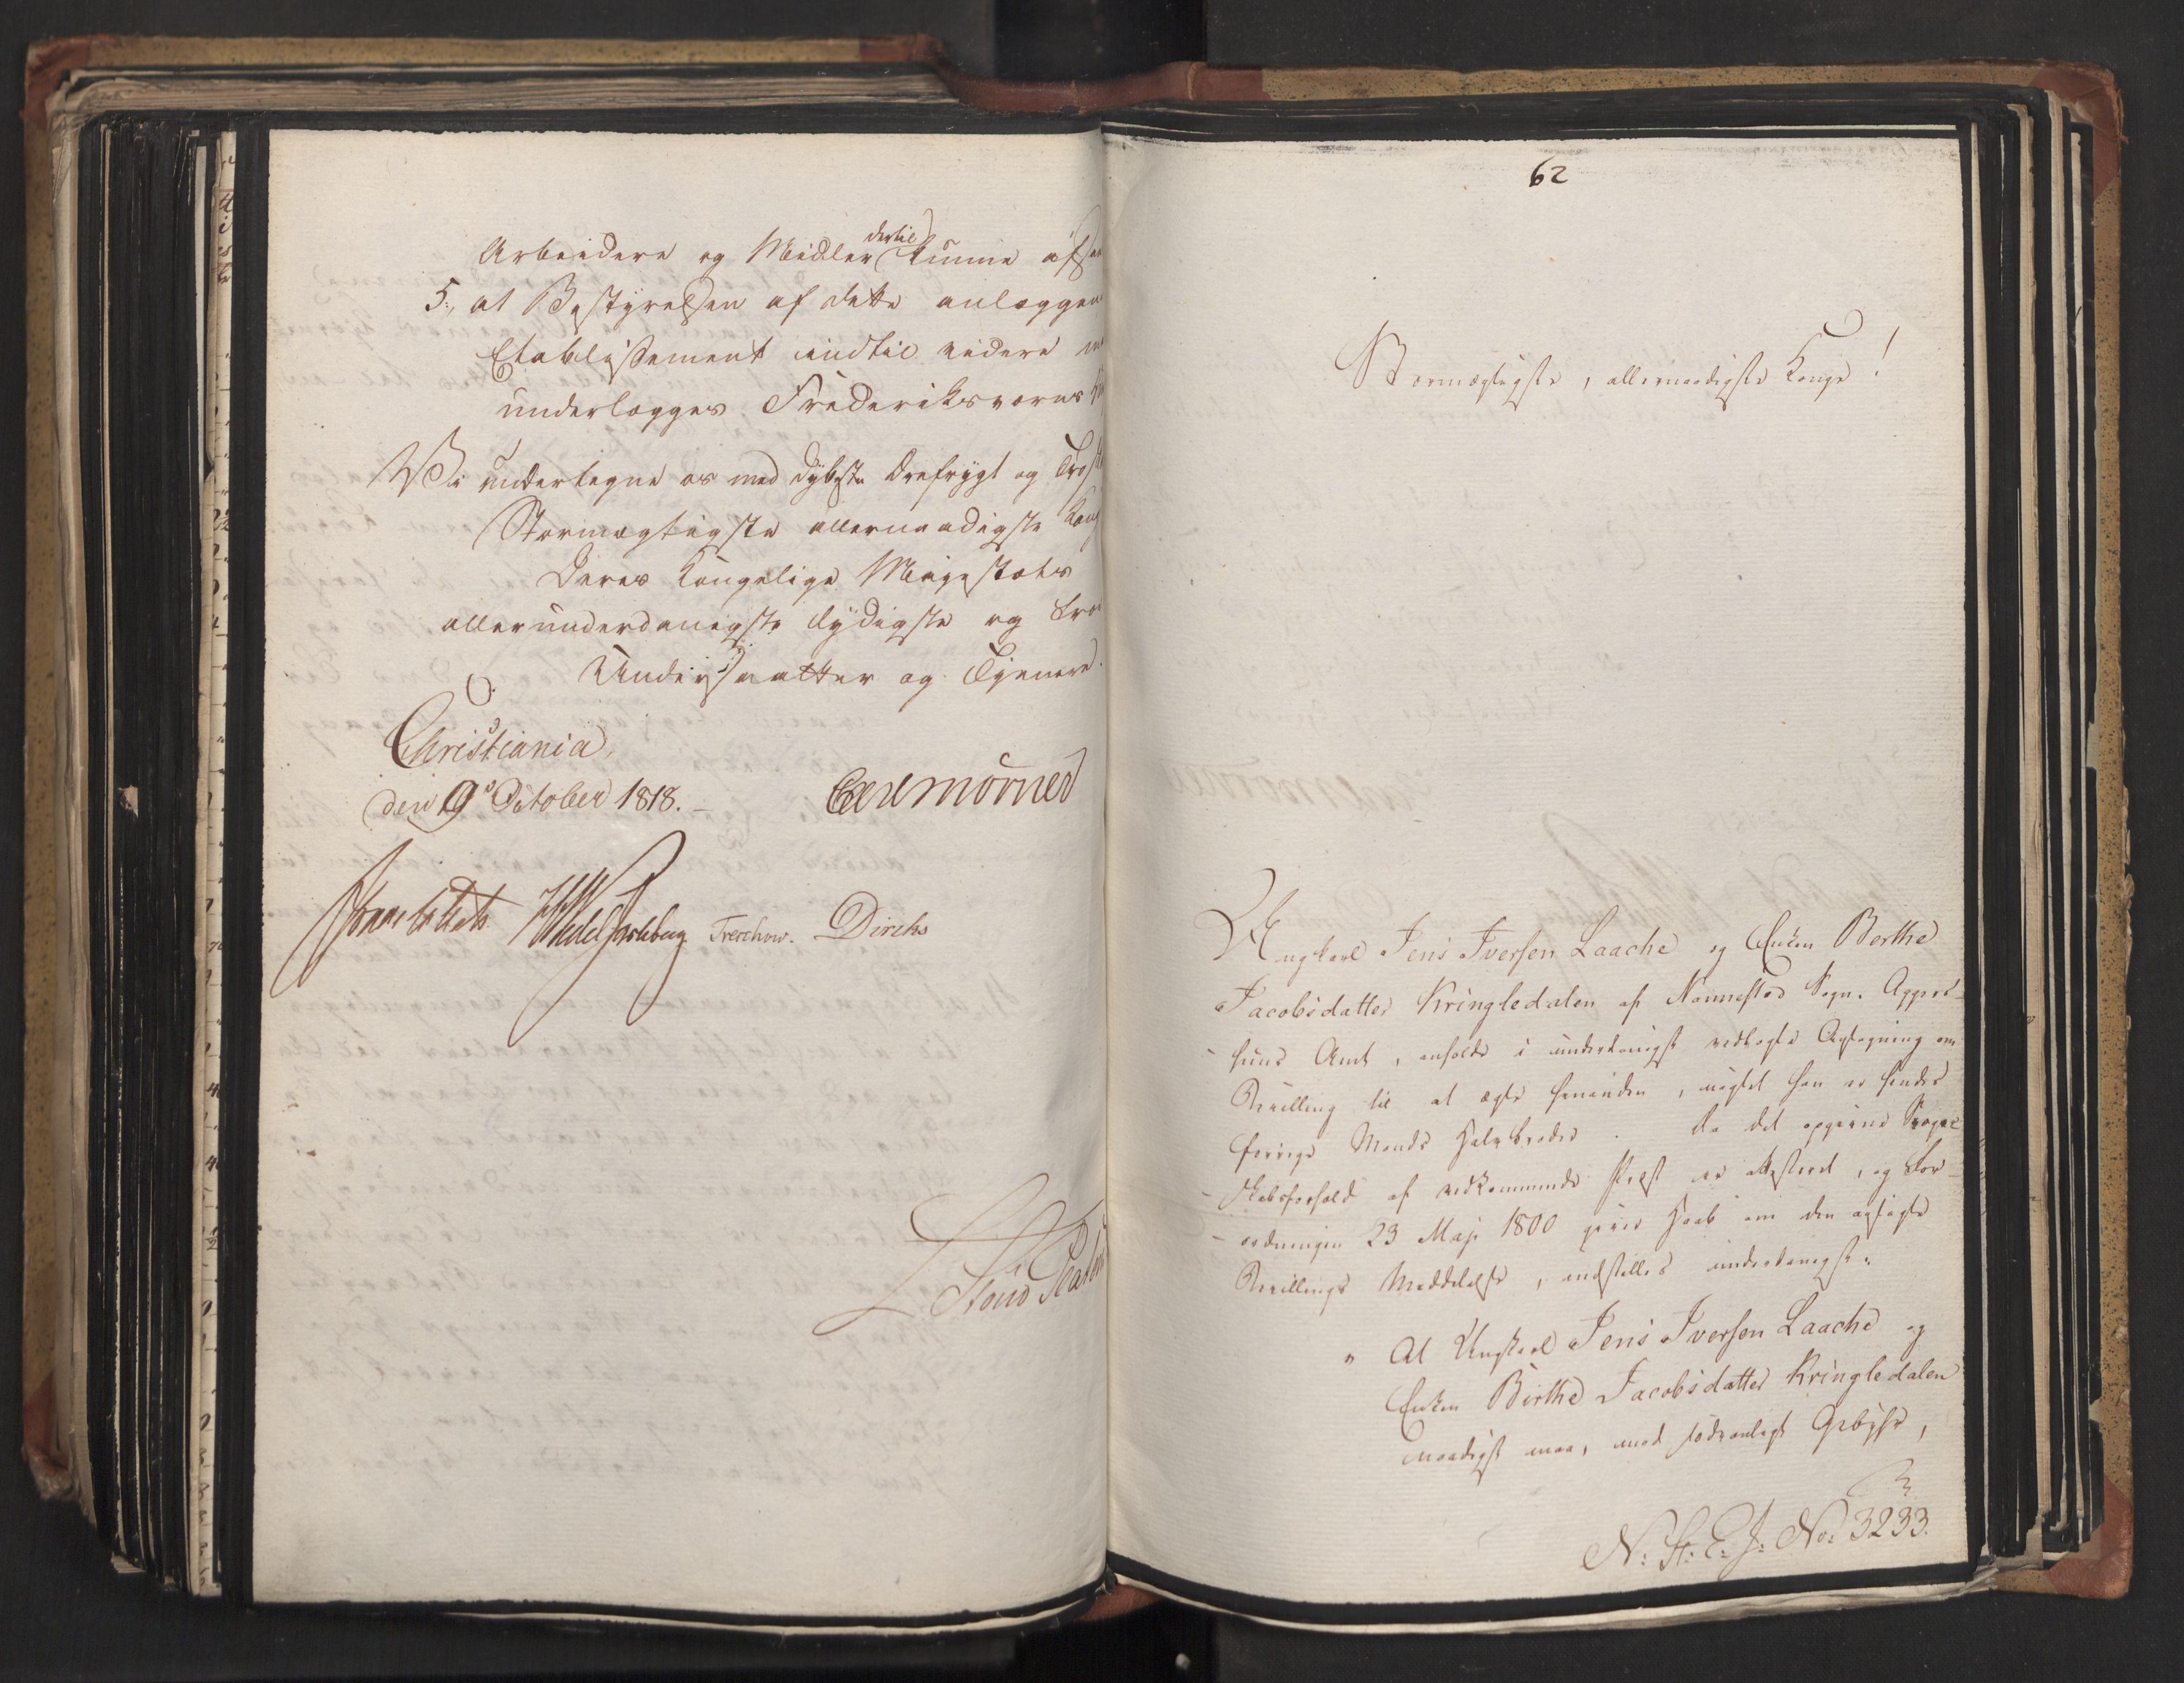 Arbeidere og Midler dertil kunne afsee
5, at Bestyrelsen af dette anlæggende
Etablissement indtil videre
underlægges Frederiksværns
Vi undertegne os med dybeste Ærefrygt og
Stormægtigste allernaadigste
Deres Kongelige Majestæts
allerunderdanigste lydigste og
Undersaatter og Tjenere.
Christiania,
den 9de October 1818.
Carl Mörner
Sommerhielm HWedel Jarlsberg Treschow. Diriks
62
Stormægtigste, allernaadigste Konge!
Ungkarl Jens Iversen Laache og Enken Berthe
Jacobsdatter Kringledalen af Nannestad Sogn, Aggers-
huus Amt, anholde i underdanigst vedlagte Ansøgning om
Bevilling til at ægte hinanden, uagtet han er hendes
forrige Mands Halvbroder. Da det opgivne Svoger-
skabsforhold af vedkommende Præst er attesteret, og For-
ordningen 23 Maji 1800 giver Haab om den ansøgte
Bevillings Meddelelse, indstilles underdanigst:
" At Ungkarl Jens Iversen Laache og
Enken Birthe Jacobsdatter Kringledalen
naadigst maa, mod sædvanligt Gebyhr,
N: St: E: J: No: 3233.